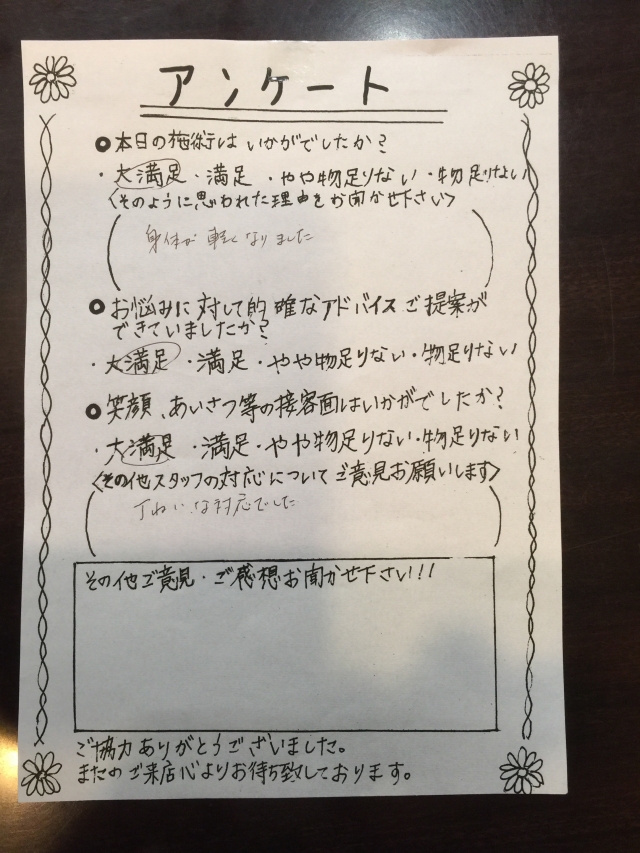 アンケート
●本日の施術はいかがでしたか？
・大満足・満足・やや物足りない・物足りない
〈そのように思われた理由をお聞かせ下さい〉
身体が軽くなりました
●お悩みに対して的確なアドバイスご提案が
できていましたか？
・大満足・満足・やや物足りない・物足りない
●笑顔、あいさつ等の接客面はいかがでしたか？
・大満足・満足・やや物足りない・物足りない
〈その他スタッフの対応についてご意見お願いします〉
丁ねいな対応でした
その他ご意見・ご感想お聞かせ下さい!!!
ご協力ありがとうございました。
またのご来店心よりお待ち致しております。